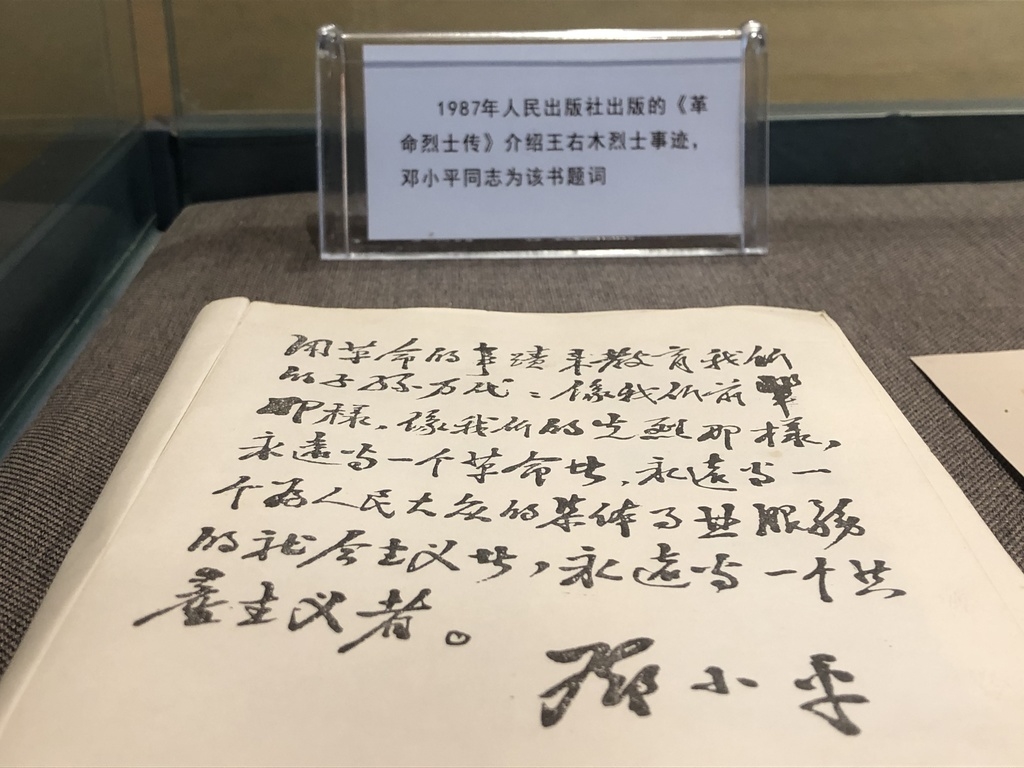 1987年人民出版社出版的《革
命烈士传》介绍王右木烈士事迹，
邓小平同志为该书题词
用革命的事蹟来教育我们
的子孫万代：像我们前辈
那樣，像我们的先烈那樣，
永遠当一个革命者，永遠当一
个为人民大众的集体事业服務
的社会主义者，永遠当一个共
產主义者。
鄧小平